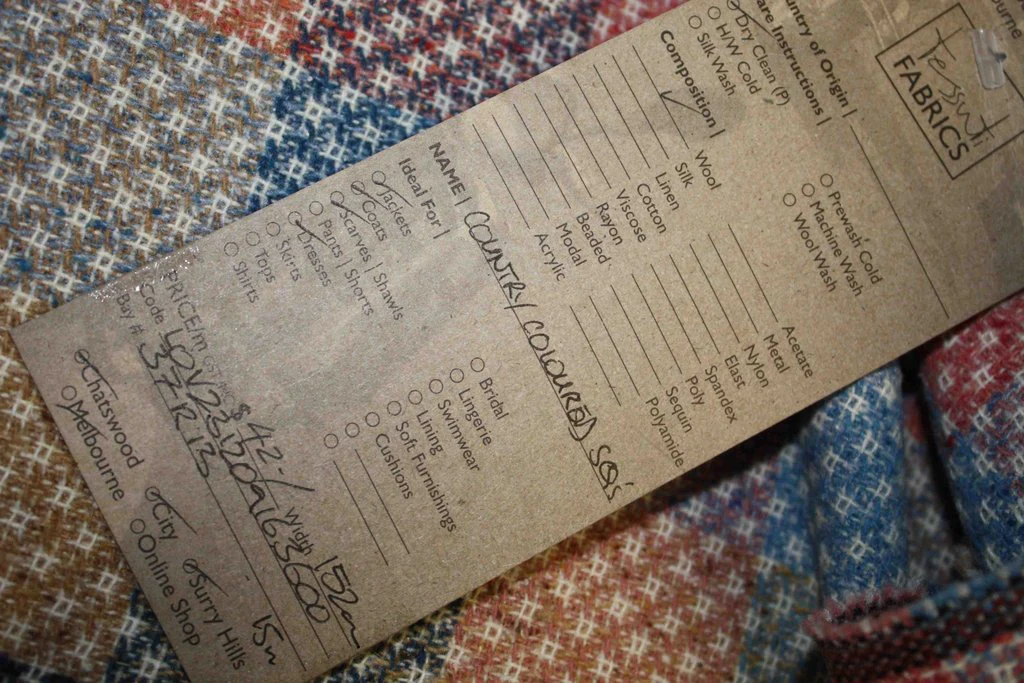 Tessuti
FABRICS
ourne
untry of Origin |
are Instructions |
Dry Clean (P)
H/W Cold
Silk Wash
Prewash Cold
Machine Wash
Wool Wash
Composition |
✓ Wool
Silk
Linen
Cotton
Viscose
Rayon
Beaded
Modal
Acrylic
Acetate
Metal
Nylon
Elast
Spandex
Poly
Sequin
Polyamide
NAME | COUNTRY COLOURED SQ'S
Ideal For |
Jackets
Coats
Scarves | Shawls
Pants | Shorts
Dresses
Skirts
Tops
Shirts
Bridal
Lingerie
Swimwear
Lining
Soft Furnishings
Cushions
PRICE/m $42-/ Width 152cm
Code
Bay # 37R123 15m
Chatswood
Melbourne
City
Online Shop
Surry Hills